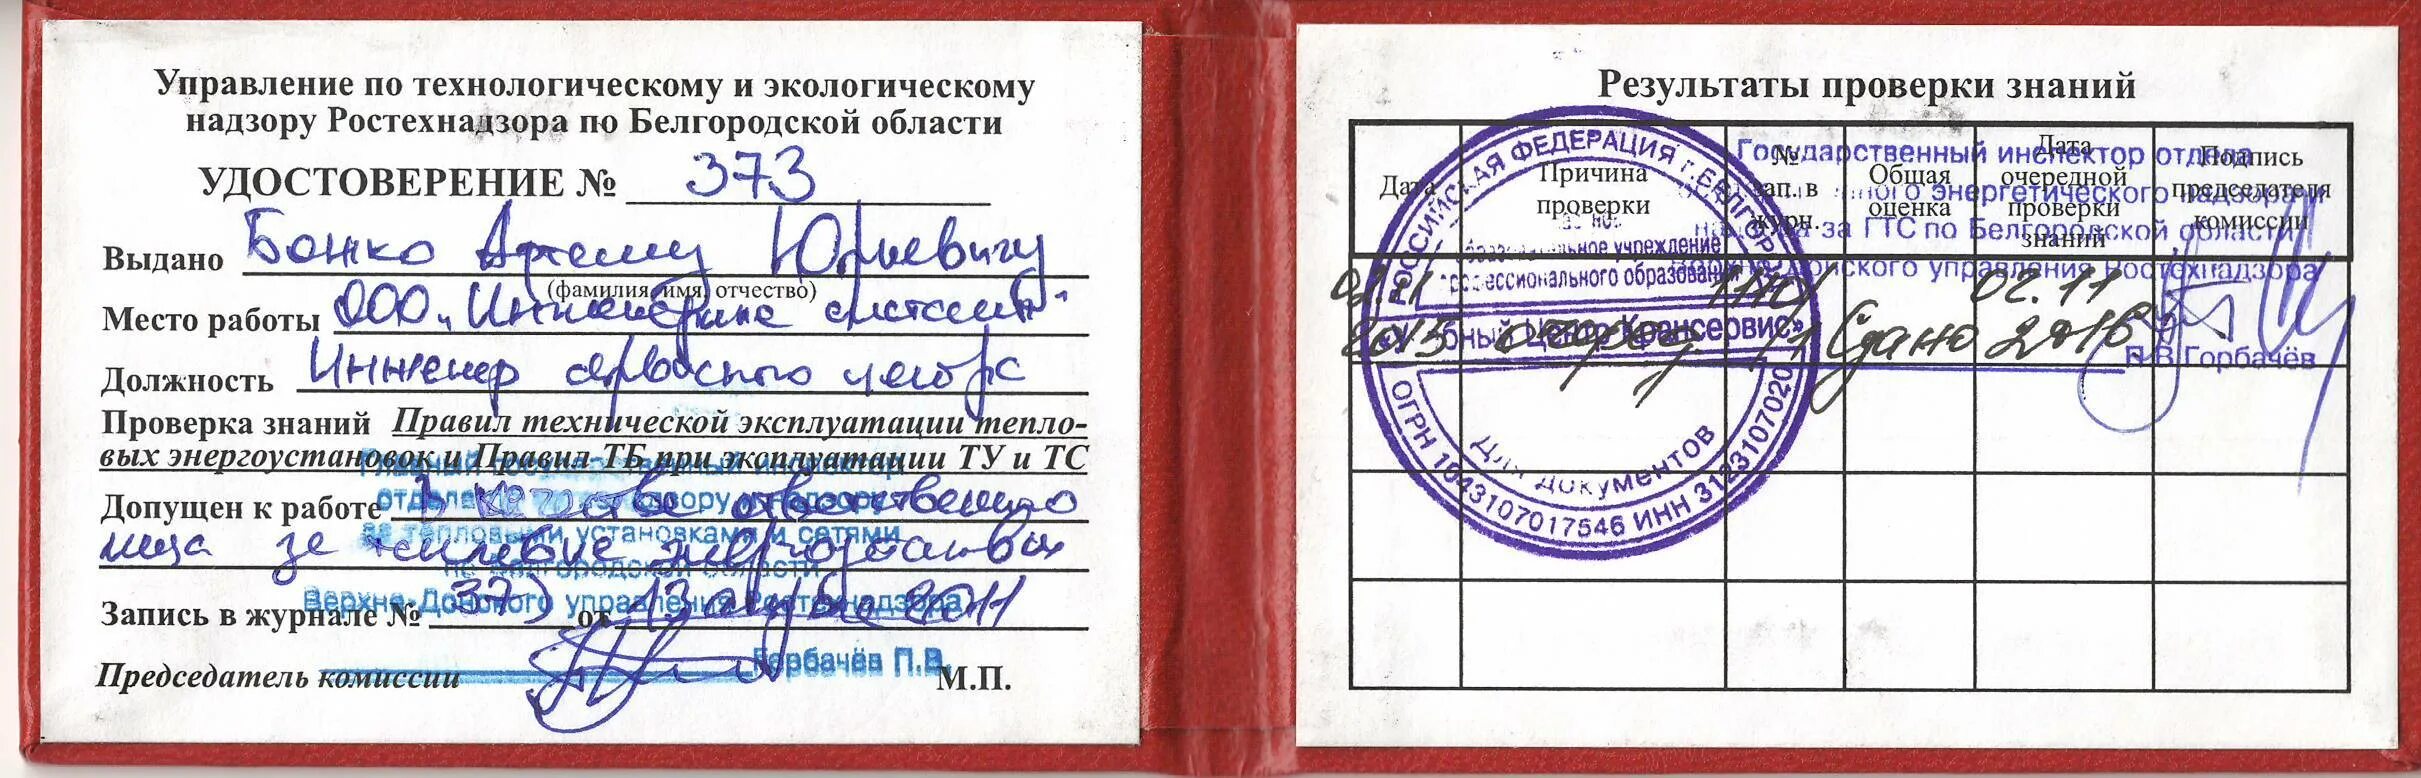 Управление по технологическому и экологическому
надзору Ростехнадзора по Белгородской области
УДОСТОВЕРЕНИЕ № 373
Выдано Божко Артему Юрьевичу
(фамилия, имя, отчество)
Место работы ООО „Инженерные системы"
Должность Инженер сервисного центра
Проверка знаний Правил технической эксплуатации тепло-
вых энергоустановок и Правил ТБ при эксплуатации ТУ и ТС
Допущен к работе в качестве ответственного
лица за тепловые
Главный государственный инспектор
отдела надзору
за тепловыми установками и сетями
по Белгородской области
Верхне-Донского управления Ростехнадзора
Запись в журнале № 373 от 13
Председатель комиссии Горбачёв П.В. М.П.
Результаты проверки знаний
Дата
Причина проверки
№ зап. в журн.
Общая оценка
Дата очередной проверки знаний
Подпись председателя комиссии
Государственный инспектор отдела
энергетического надзора и
надзора за ГТС по Белгородской области
Верхне-Донского управления Ростехнадзора
П.В.Горбачёв
02.11 2015 Сдано 02.11 2016
РОССИЙСКАЯ ФЕДЕРАЦИЯ г.БЕЛГОРОД
образовательное учреждение
профессионального образования
«Учебный Центр Трансервис»
Для документов
ОГРН 1043107017546 ИНН